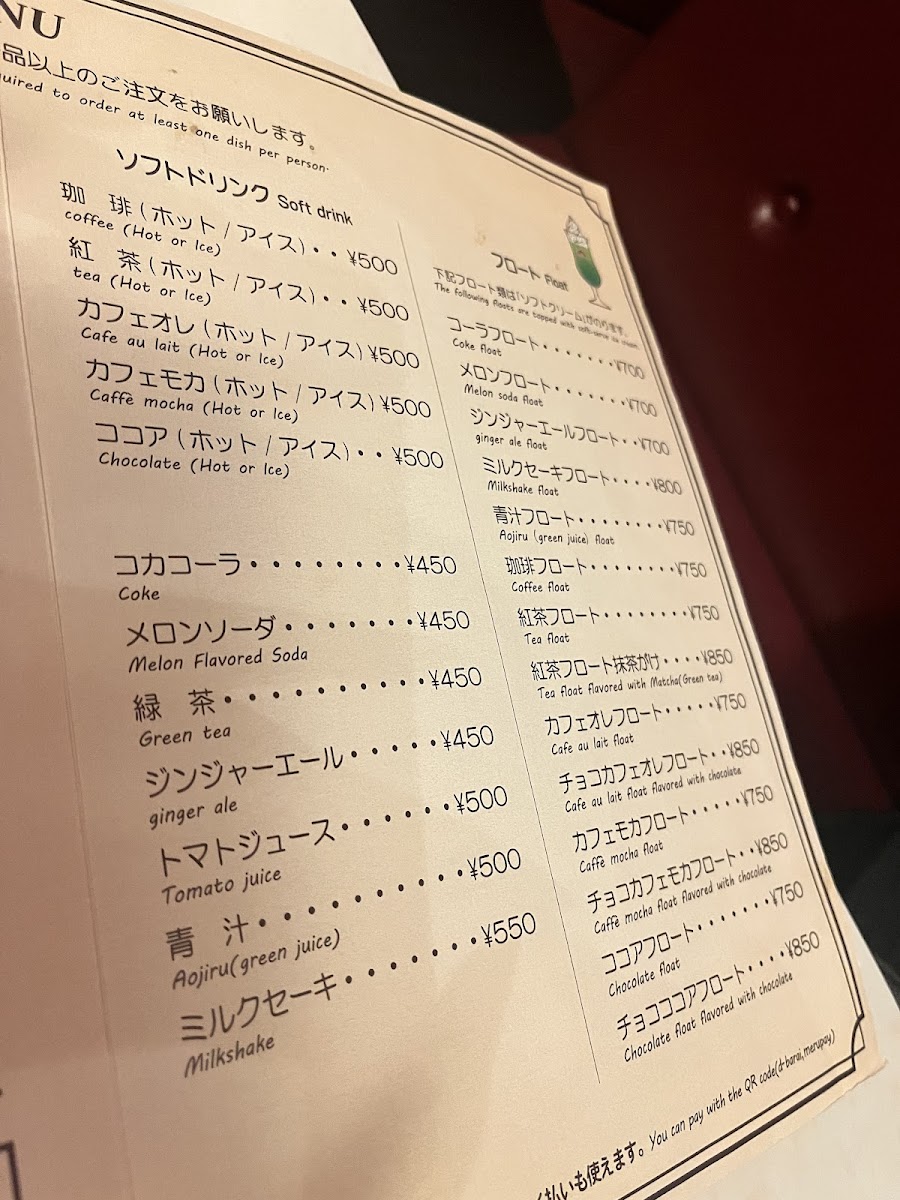 NU
品以上のご注文をお願いします。
uired to order at least one dish per person.
ソフトドリンク Soft drink
珈 琲(ホット/アイス)・・¥500
coffee (Hot or Ice)
紅 茶(ホット/アイス)・・¥500
tea (Hot or Ice)
カフェオレ(ホット/アイス)¥500
Cafe au lait (Hot or Ice)
カフェモカ(ホット/アイス)¥500
Caffè mocha (Hot or Ice)
ココア(ホット/アイス)・・¥500
Chocolate (Hot or Ice)
コカコーラ・・・・・・・・¥450
Coke
メロンソーダ・・・・・・・¥450
Melon Flavored Soda
緑 茶・・・・・・・・・・¥450
Green tea
ジンジャーエール・・・・・¥450
ginger ale
トマトジュース・・・・・・¥500
Tomato juice
青 汁・・・・・・・・・・¥500
Aojiru(green juice)
ミルクセーキ・・・・・・・¥550
Milkshake
フロート Float
下記フロート類は「ソフトクリーム」がのります。
The following floats are topped with soft-serve ice cream
コーラフロート・・・・・・・¥700
Coke float
メロンフロート・・・・・・・¥700
Melon soda float
ジンジャーエールフロート・・¥700
ginger ale float
ミルクセーキフロート・・・・¥800
Milkshake float
青汁フロート・・・・・・・・¥750
Aojiru (green juice) float
珈琲フロート・・・・・・・・¥750
Coffee float
紅茶フロート・・・・・・・・¥750
Tea float
紅茶フロート抹茶がけ・・・・¥850
Tea float flavored with Matcha(Green tea)
カフェオレフロート・・・・・¥750
Cafe au lait float
チョコカフェオレフロート・・¥850
Cafe au lait float flavored with chocolate
カフェモカフロート・・・・・¥750
Caffè mocha float
チョコカフェモカフロート・・¥850
Caffè mocha float flavored with chocolate
ココアフロート・・・・・・・¥750
Chocolate float
チョコココアフロート・・・・¥850
Chocolate float flavored with chocolate
払いも使えます。You can pay with the QR code(d-barai,merupay)